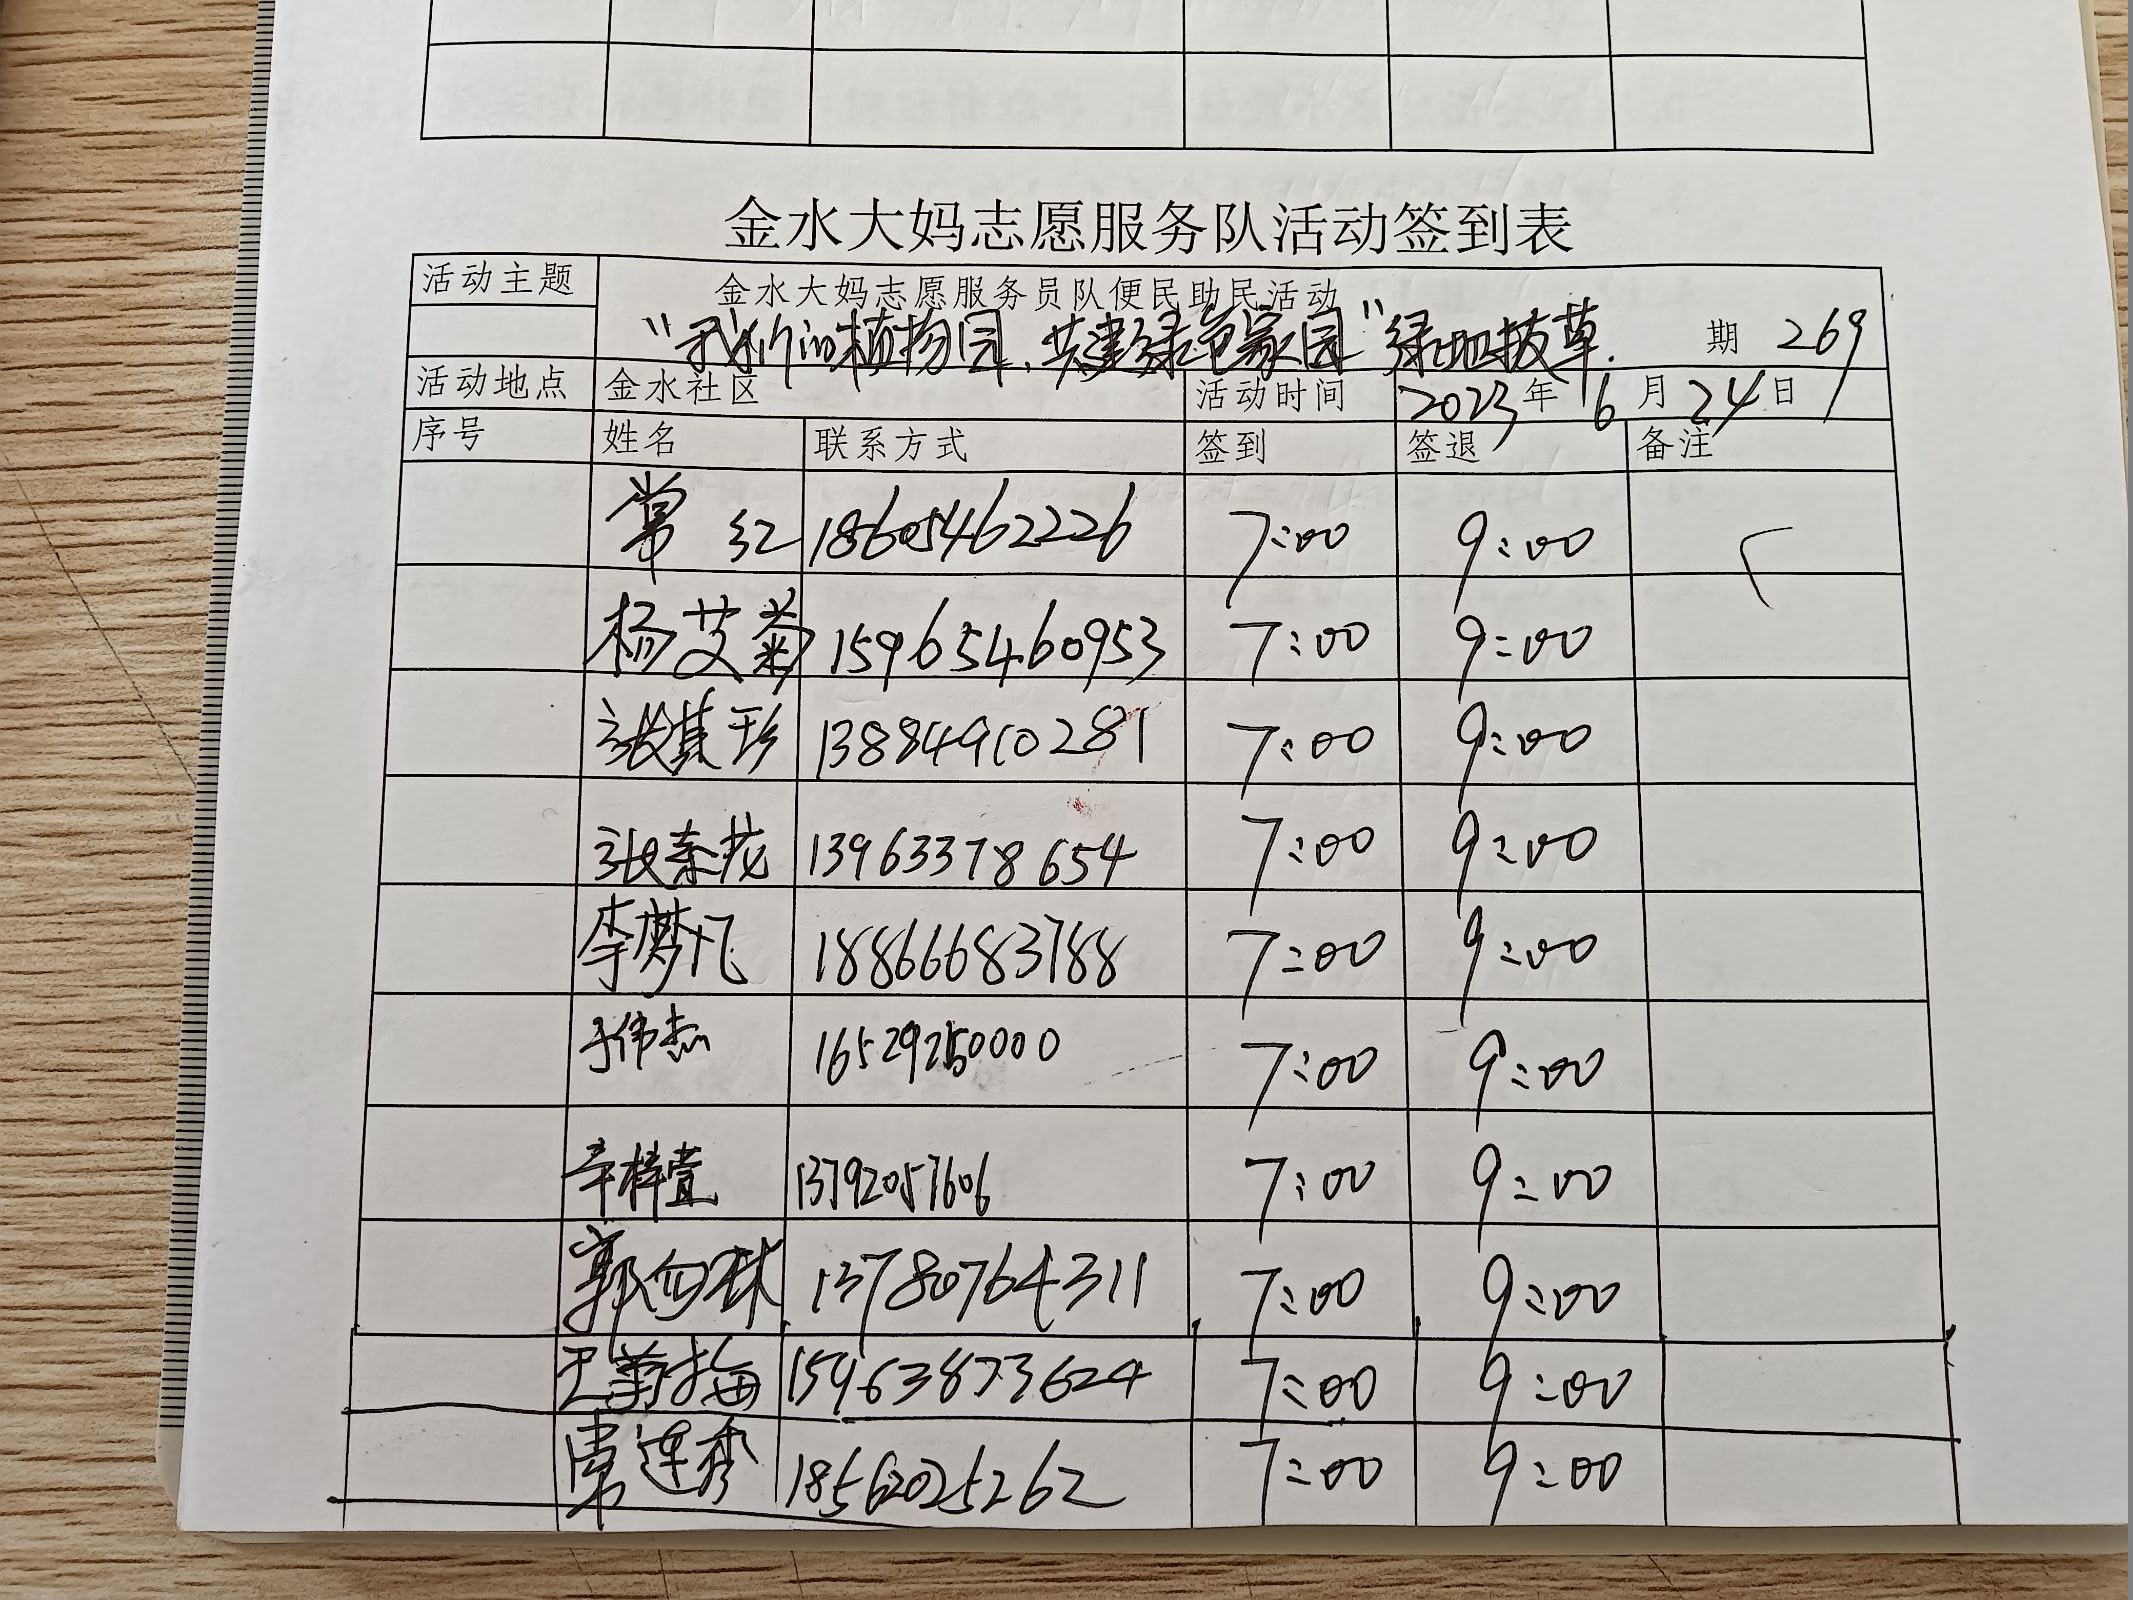 金水大妈志愿服务队活动签到表
活动主题 金水大妈志愿服务员队便民助民活动
“我们的植物园、共建绿色家园”绿地拔草. 期 269
活动地点 金水社区 活动时间 2023年 6月 24日
序号 姓名 联系方式 签到 签退 备注
常红 18605462226 7:00 9:00
杨艾菊 15965460953 7:00 9:00
张其珍 13884910281 7:00 9:00
张秦龙 13963378654 7:00 9:00
李梦凡 18866683788 7:00 9:00
于伟杰 7:00 9:00
辛梓萱 13792057606 7:00 9:00
郭 13780764311 7:00 9:00
王 梅 15963873624 7:00 9:00
常连秀 18562025262 7:00 9:00